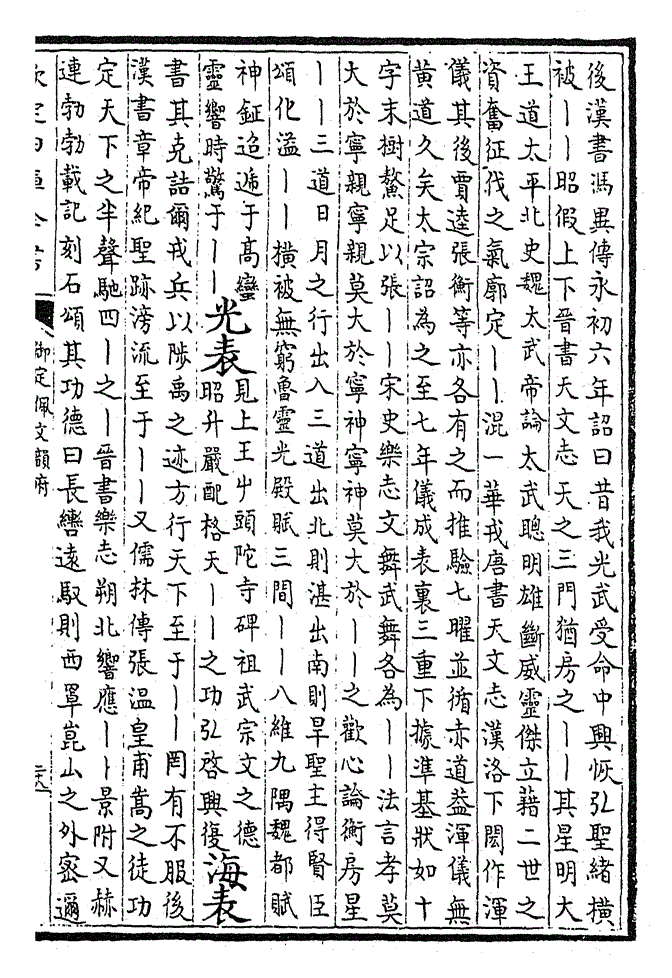 後漢書馮異傳永初六年詔曰昔我光武受命中興恢弘聖緒橫
被丨丨昭假上下晉書天文志天之三門猶房之丨丨其星明大
王道太平北史魏太武帝論太武聰明雄斷威靈傑立藉二世之
資奮征伐之氣廓定丨丨混一華戎唐書天文志漢洛下閎作渾
儀其後賈逵張衡等亦各有之而推驗七曜並循赤道益渾儀無
黃道久矣太宗詔為之至七年儀成表裏三重下據準基狀如十
字末樹鰲足以張丨丨宋史樂志文舞武舞各為丨丨法言孝莫
大於寧親寧親莫大於寧神寧神莫大於丨丨之歡心論衡房星
丨丨三道日月之行出入三道出北則湛出南則旱聖主得賢臣
頌化溢丨丨橫被無窮魯靈光殿賦三間丨丨八維九隅魏都賦
神鉦迢遞于高巒
靈響時驚于丨丨
光表
見上王屮頭陀寺碑祖武宗文之德
昭升嚴配格天丨丨之功弘啓興復
海表
書其克詰爾戎兵以陟禹之迹方行天下至于丨丨罔有不服後
漢書章帝紀聖跡滂流至于丨丨又儒林傳張溫皇甫嵩之徒功
定天下之半聲馳四丨之丨晉書樂志朔北響應丨丨景附又赫
連勃勃載記刻石頌其功德曰長轡遠馭則西罩崑山之外密邇
欽定四庫全書
御定佩文韻府